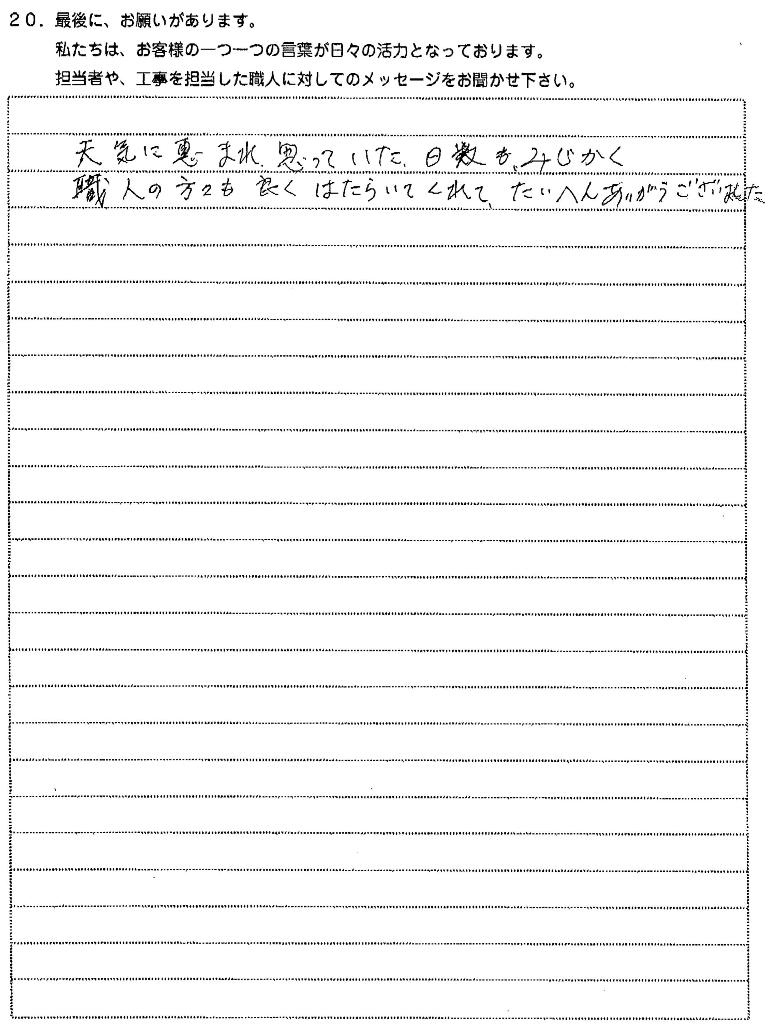 20. 最後に、お願いがあります。
私たちは、お客様の一つ一つの言葉が日々の活力となっております。
担当者や、工事を担当した職人に対してのメッセージをお聞かせ下さい。
天気に恵まれ、思っていた、日数も、みじかく
職人の方々も良くはたらいてくれて、たいへんありがとうございました